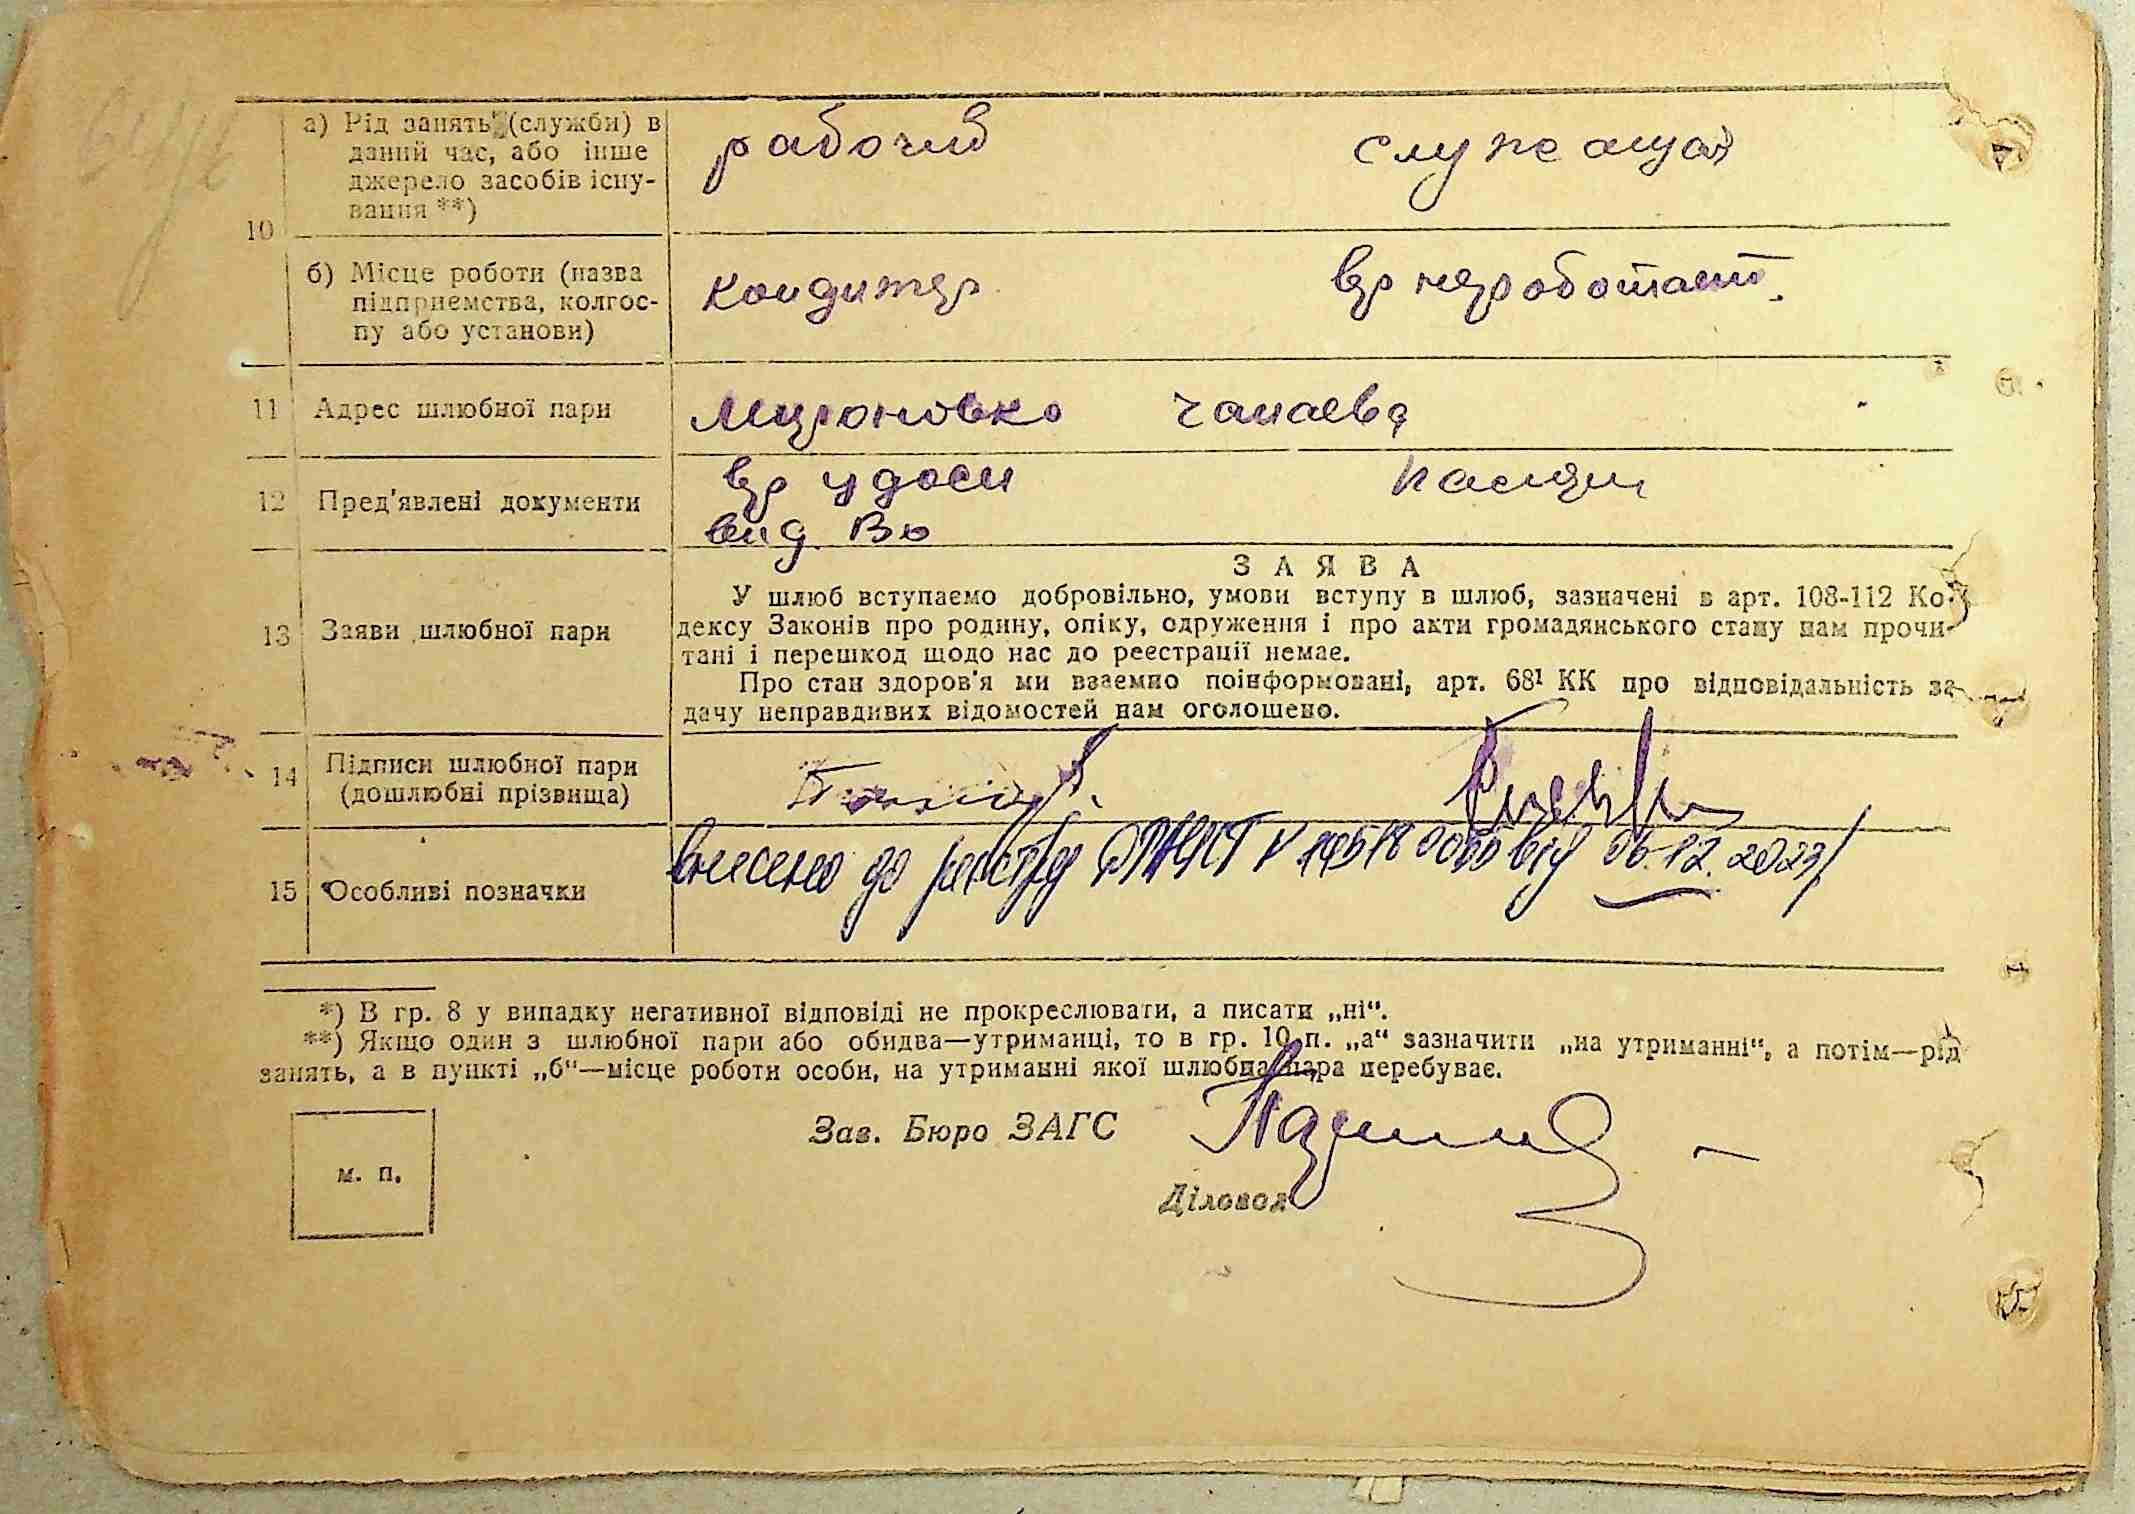 а) Рід занять (служби) в
даний час, або інше
джерело засобів існу-
вання **)
рабочий служащая
10
б) Місце роботи (назва
підприємства, колгос-
пу або установи)
кондитер вр не работает.
11 Адрес шлюбної пари Мироновка Чапаева
12 Пред'явлені документи
вр удост паспорт
вид. Во
13 Заяви шлюбної пари
ЗАЯВА
У шлюб вступаємо добровільно, умови вступу в шлюб, зазначені в арт. 108-112 Ко-
дексу Законів про родину, опіку, одруження і про акти громадянського стану нам прочи-
тані і перешкод щодо нас до реєстрації немає.
Про стан здоров'я ми взаємно поінформовані, арт. 68¹ КК про відповідальність за
дачу неправдивих відомостей нам оголошено.
14 Підписи шлюбної пари
(дошлюбні прізвища)
15 Особливі позначки
внесено до реєстру від 06.12.2023
*) В гр. 8 у випадку негативної відповіді не прокреслювати, а писати „ні“.
**) Якщо один з шлюбної пари або обидва—утриманці, то в гр. 10 п. „а“ зазначити „на утриманні“, а потім—рід
занять, а в пункті „б“—місце роботи особи, на утриманні якої шлюбна пара перебуває.
Зав. Бюро ЗАГС
м. п.
Діловод